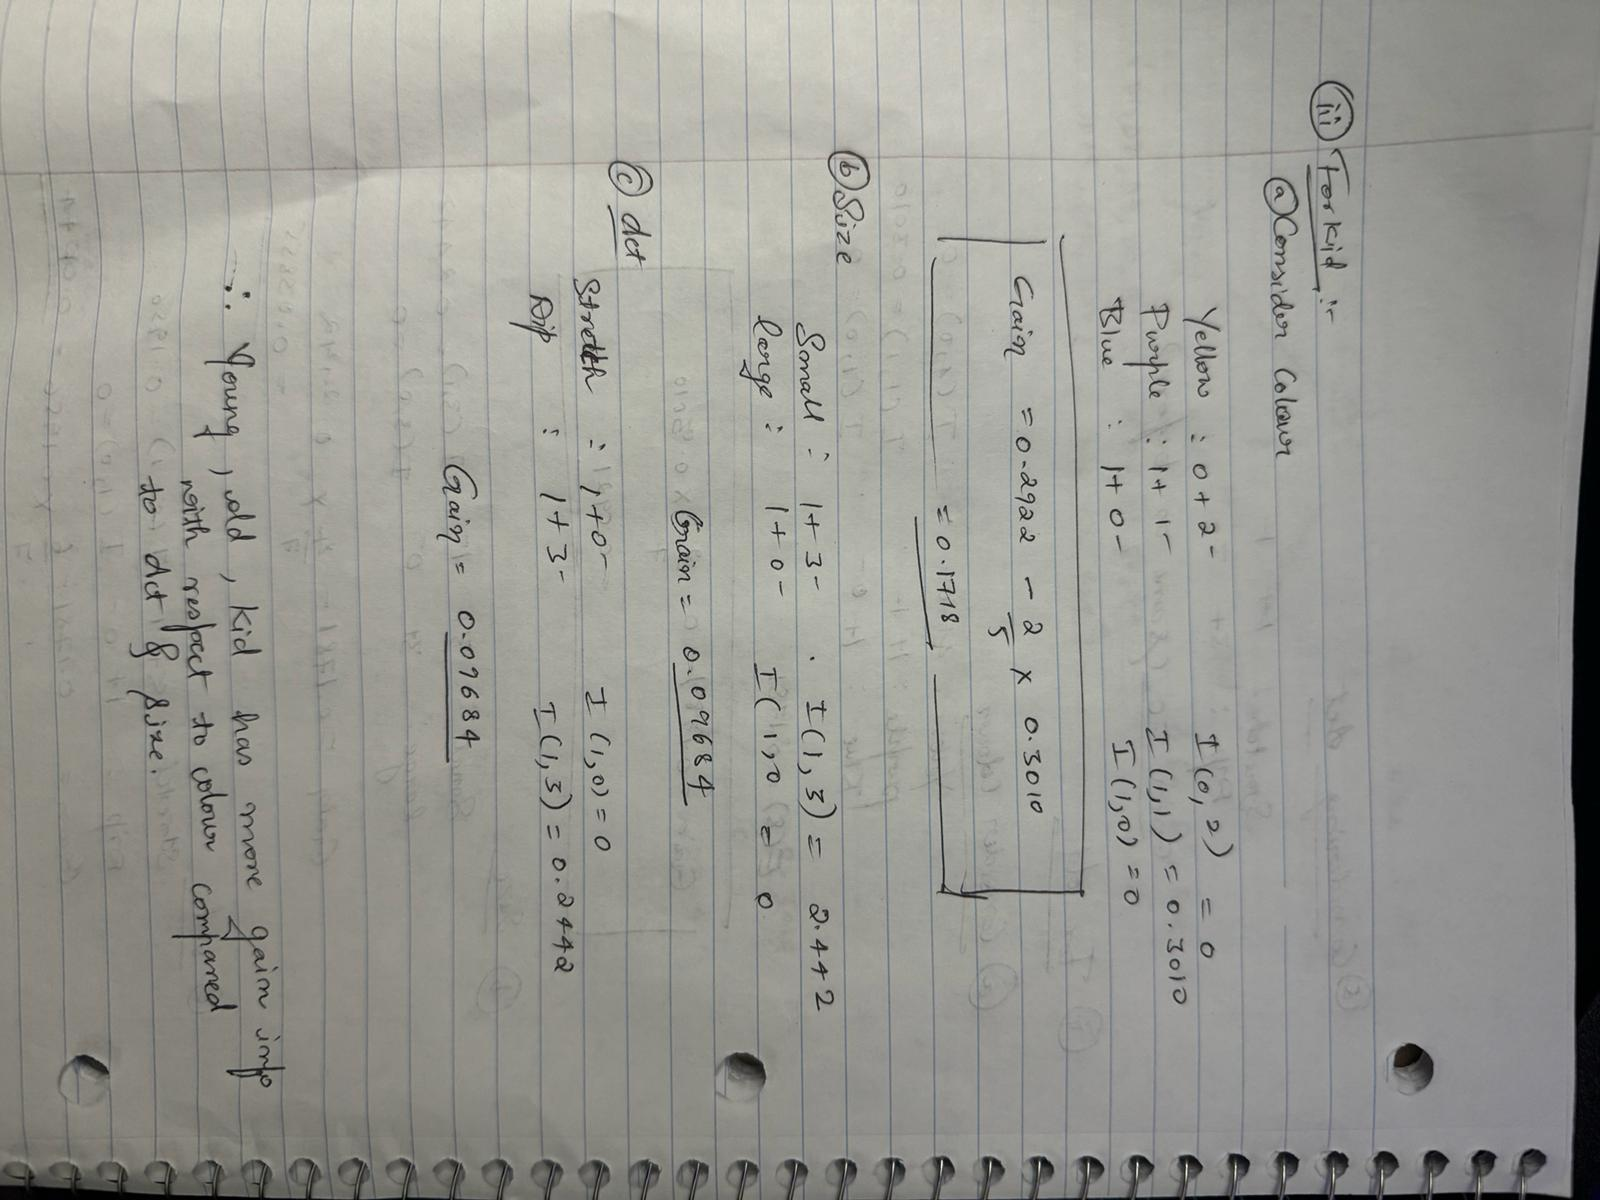 iii For kid :-
a Consider Colour
Yellow : 0+ 2- I(0,2) = 0
Purple : 1+ 1- I(1,1) = 0.3010
Blue : 1+ 0- I(1,0) = 0
Gain = 0.2922 - 2/5 x 0.3010
= 0.1718
b Size
Small : 1+ 3- . I(1,3) = 2.442
large : 1+ 0- I(1,0 = 0
Gain = 0.09684
c dct
Stretch : 1+0- I(1,0) = 0
Dip : 1+3- I(1,3) = 0.2442
Gain = 0.09684
∴ Young, old, kid has more gain info
with respect to colour compared
to dct & size.